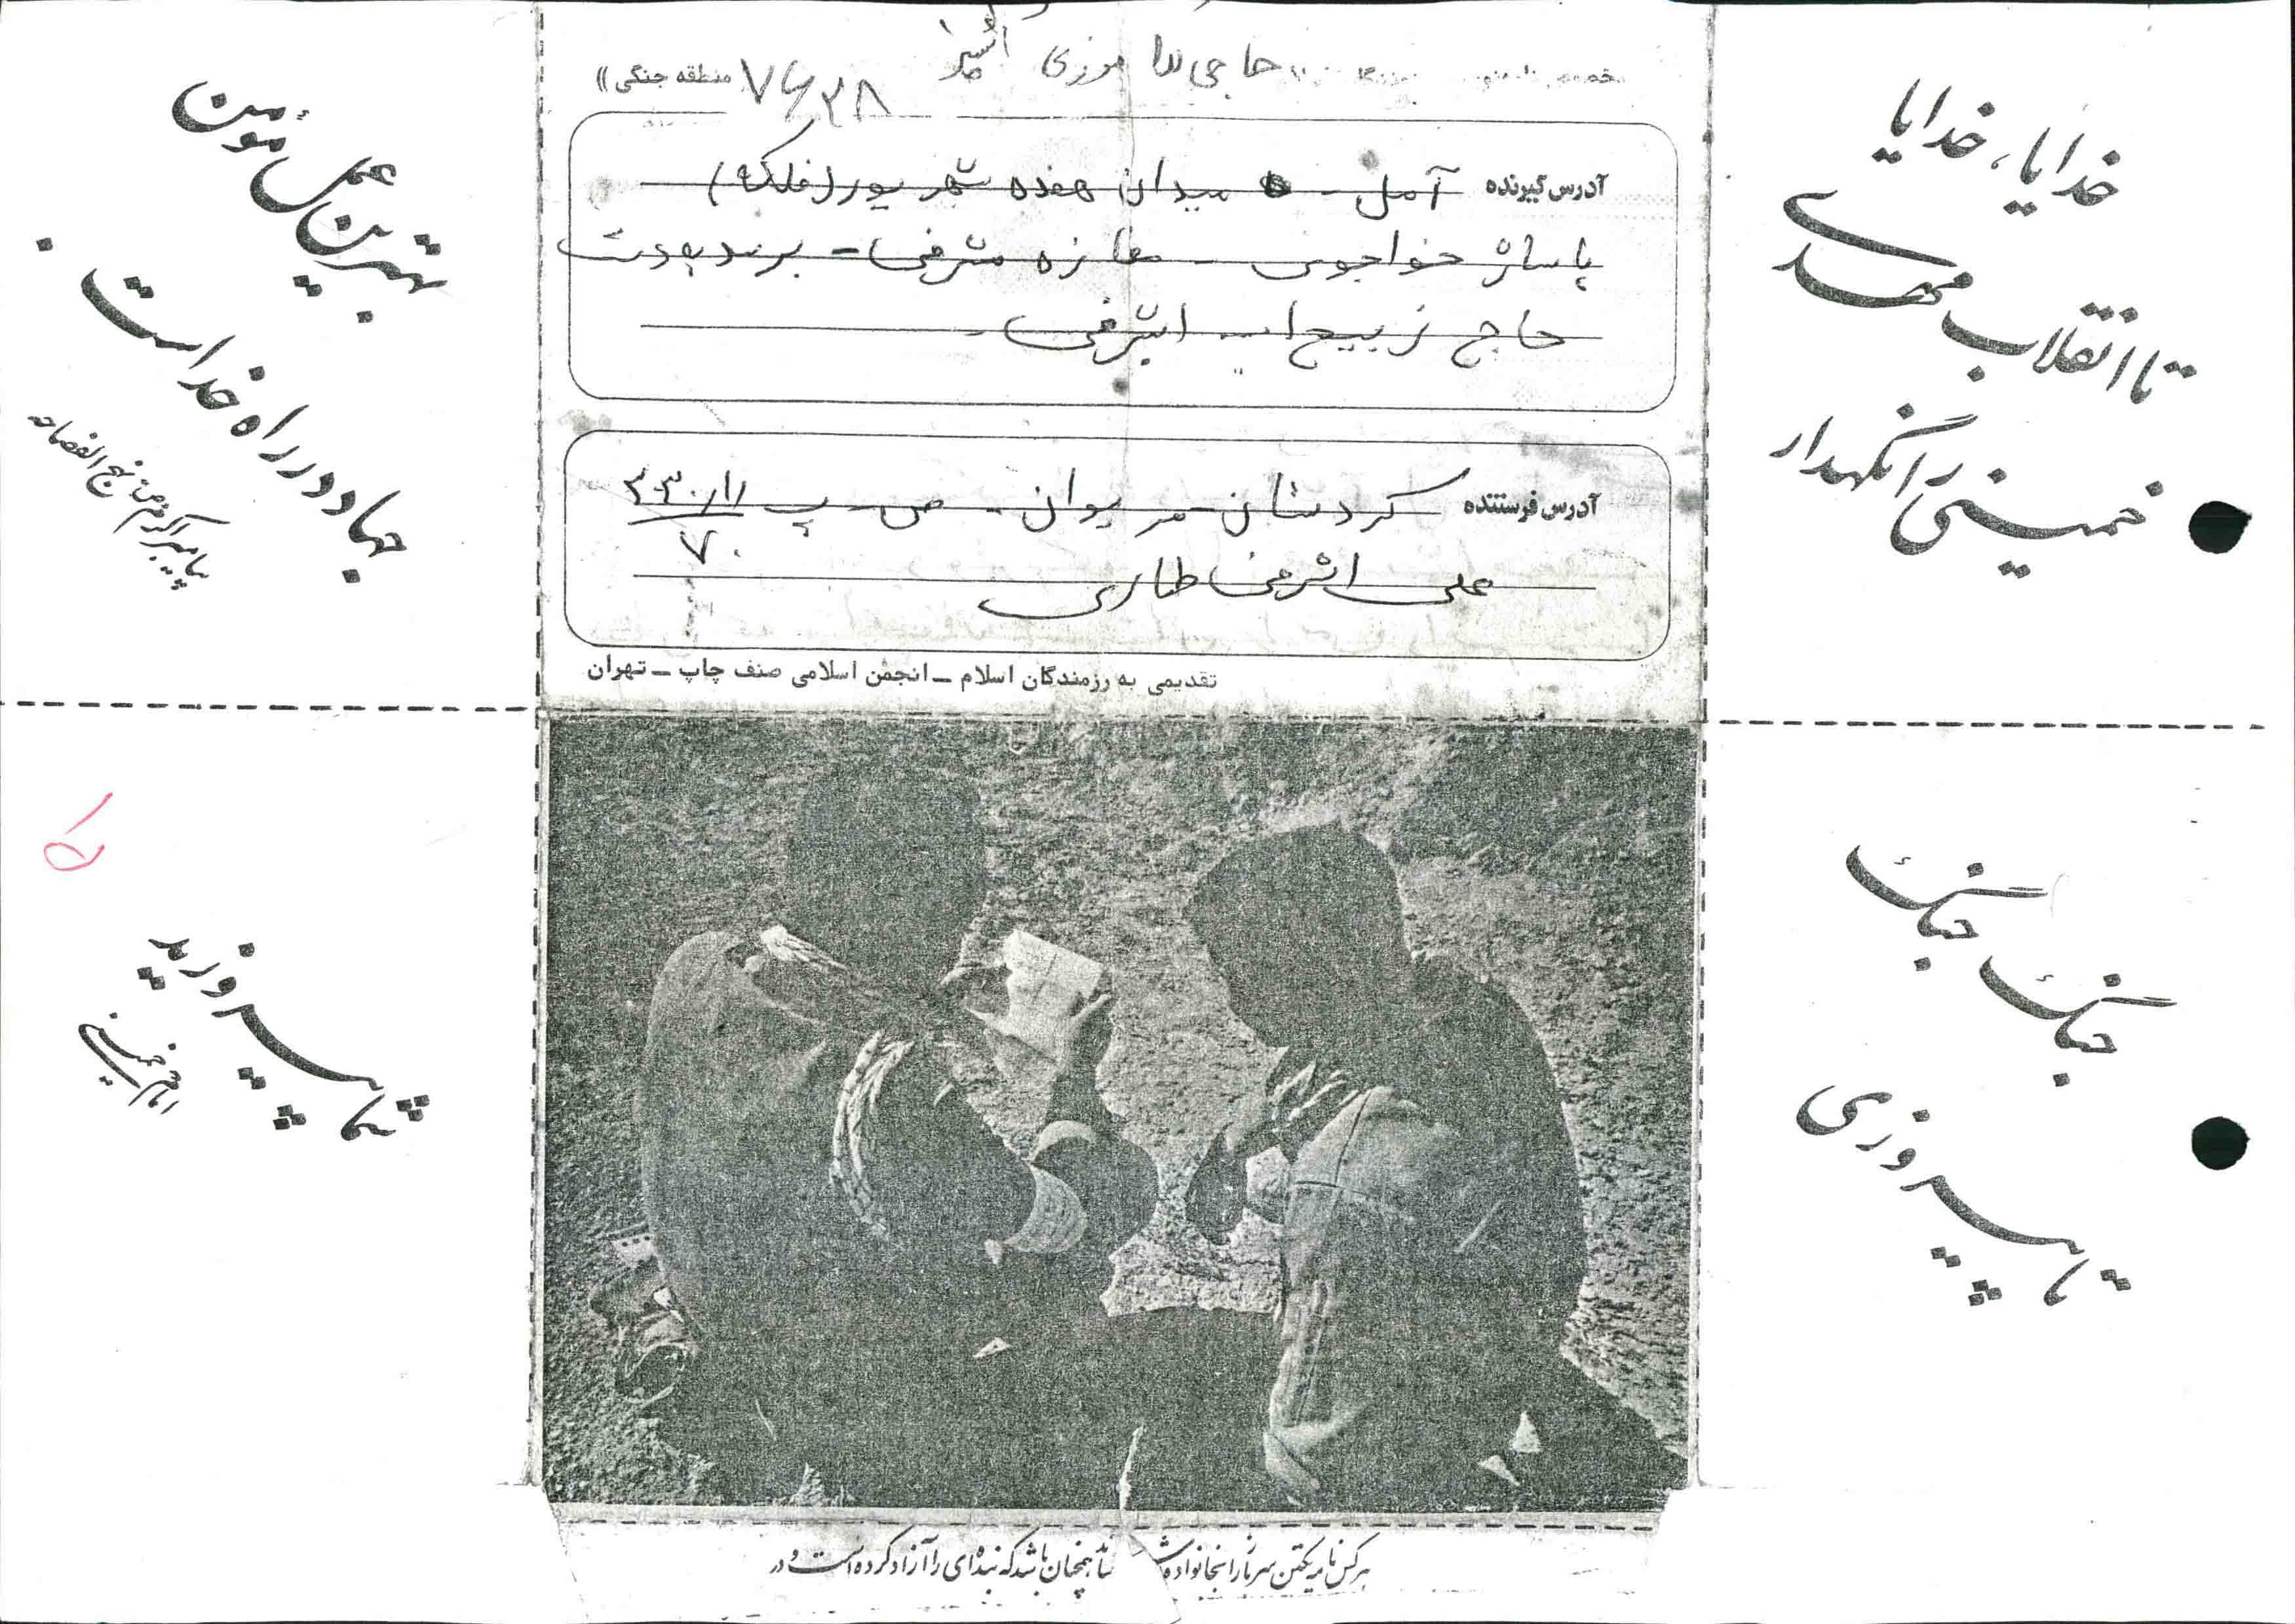 حاجی
۷۶۳۸
منطقه جنگی ))
آدرس گیرنده آمل - میدان هفده شهریور (فلکه)
پاساژ خواجوی - مغازه شرفی -
حاج ذبیح اله اشرفی
آدرس فرستنده کردستان - مریوان - ص - پ ۳۳۰/۱۱
۷۰
علی اشرفی طاری
تقدیمی به رزمندگان اسلام ــ انجمن اسلامی صنف چاپ ــ تهران
خدایا، خدایا
تا انقلاب مهدی
خمینی را نگهدار
جنگ جنگ
تا پیروزی
بهترین عمل مؤمن
جهاد در راه خدا است .
پیامبر اکرم ص نهج الفصاحه
شما پیروزید
امام خمینی
۵
هر کس نامه یکتن سرباز را بخانواده‌اش همچنان باشد که بنده‌ای را آزاد کرده است و در